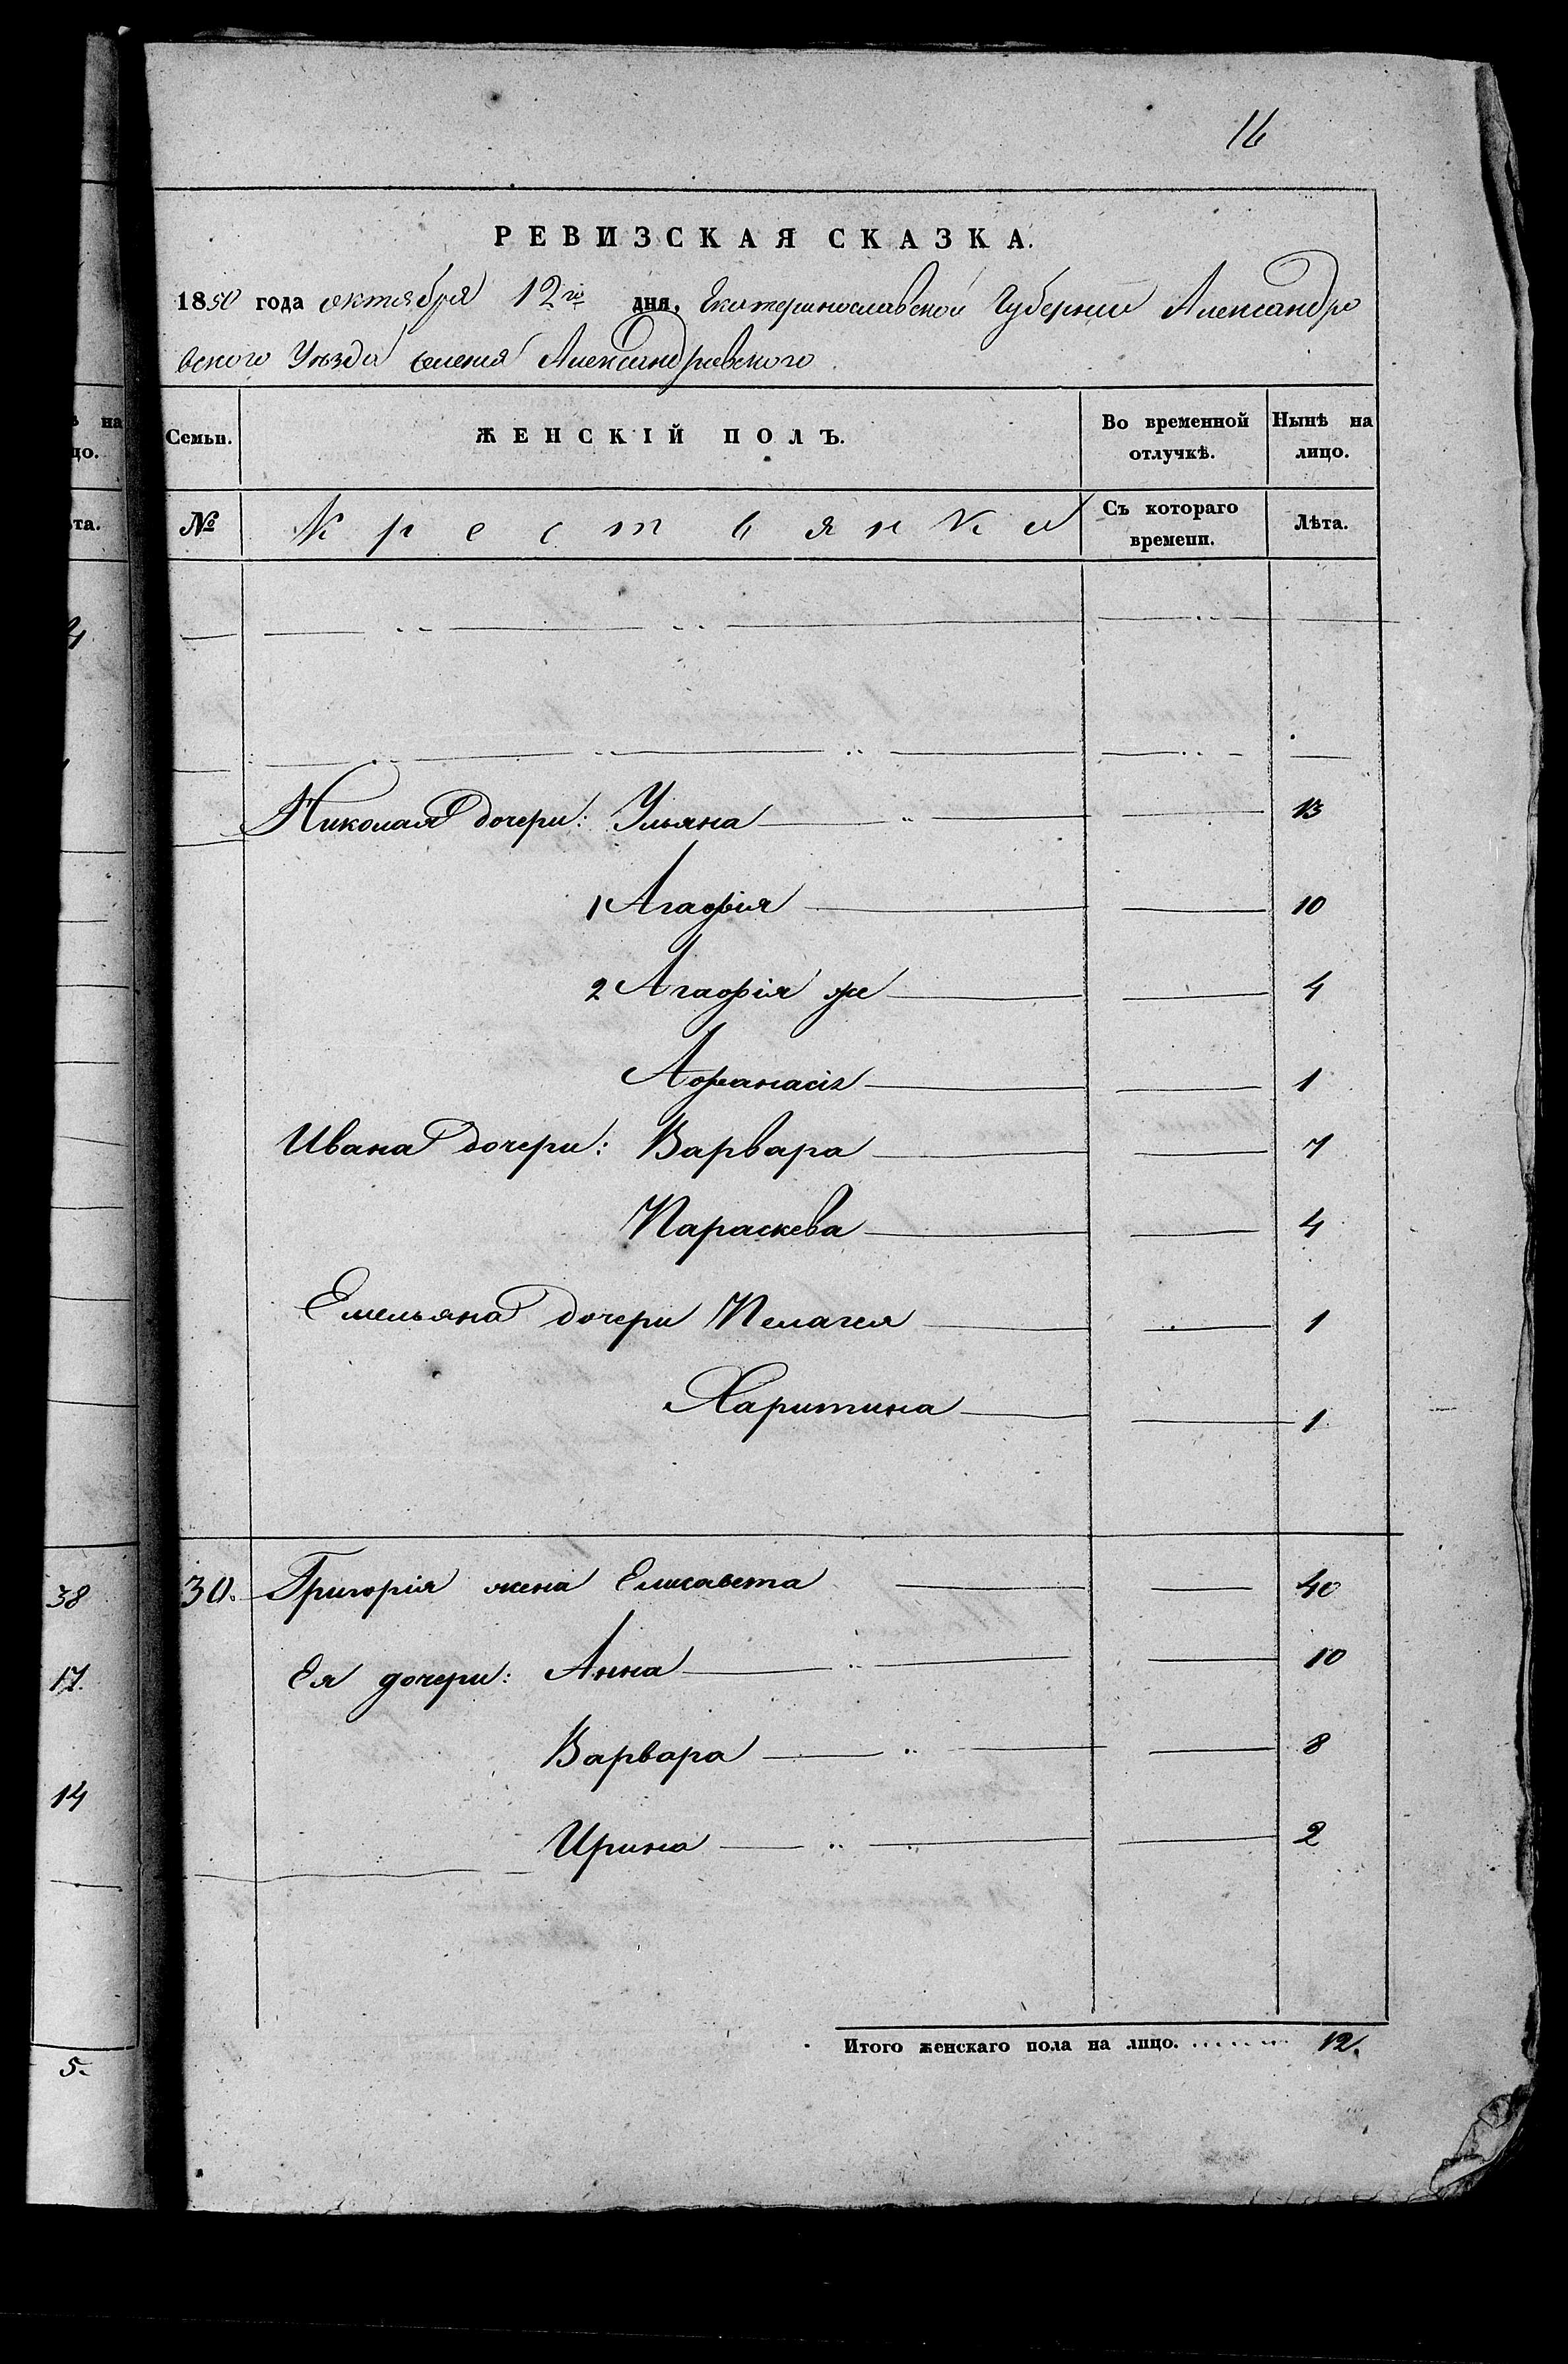 16
РЕВИЗСКАЯ СКАЗКА.
1850 года октября 12го дня, Екатеринославской Губернии Александро
вского Уѣзда селения Александровского
на
цо.
Семьи. ЖЕНСКІЙ ПОЛЪ. Во временной отлучкѣ. Нынѣ на лицо.
та.
№ Крестьянки Съ котораго времени. Лѣта.
Николая дочери: Ульяна 13
1 Агафія 10
2 Агафія же 4
Афанасія 1
Ивана дочери: Варвара 7
Параскева 4
Емельяна дочери Пелагея 1
Харитина 1
38
30. Григорія жена Елисавета 40
17.
Ея дочери: Анна 10
Варвара 8
14
Ирина 2
Итого женскаго пола на лицо. 12.
5.